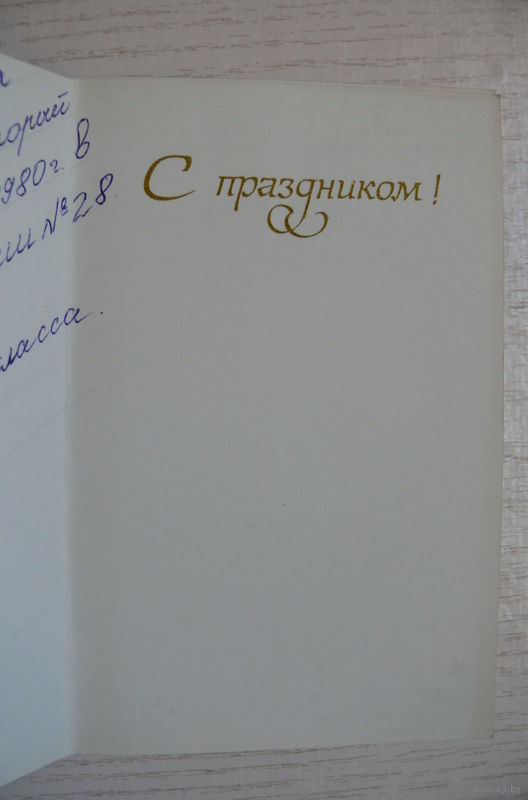 980г. в
№28.
ласса.
С праздником!
www.ay.by